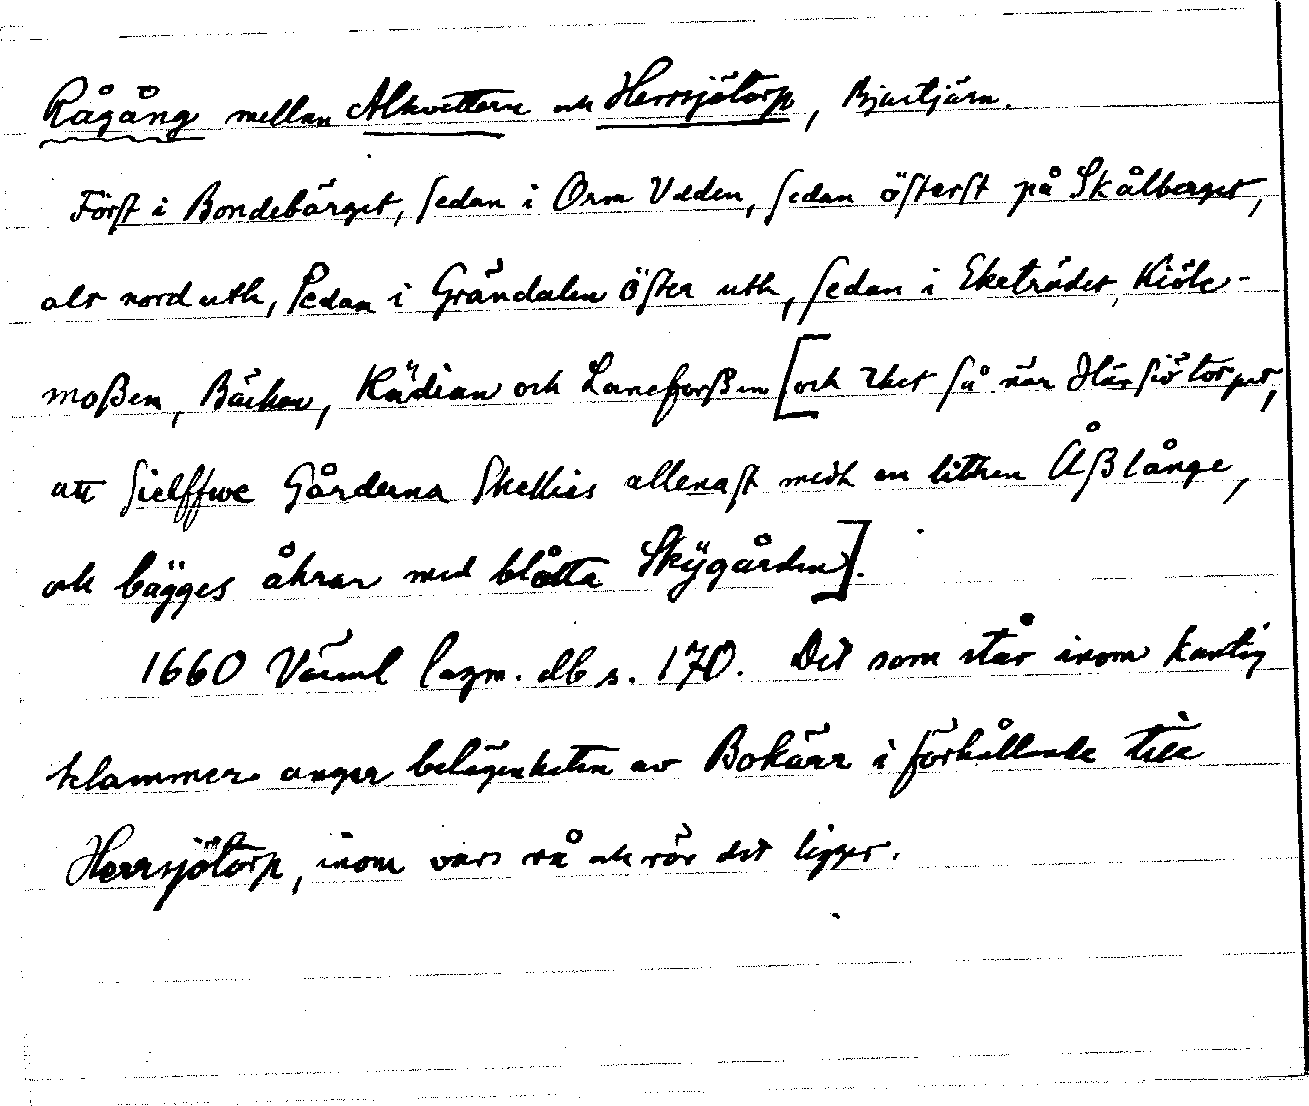 Rågång mellan Alkvettern och Herrsjötorp, Bjurtjärn.
Först i Bondebärget, sedan i Orm Udden, sedan österst på Skålberget,
alt nord uth, Sedan i Grändalen öster uth, sedan i Eketrädet, Kiöle-
moßen, Bäcken, Kädian och Laneforßen [och thet så när Härsiötorpet,
att sielffwe Gårderna Skellies allenast medh en lithen Åßlånge,
och bägges åkrar med blåtta Skÿgården].
1660 Värml lagm. db s. 170. Det som står inom kantig
klammer anger belägenheten av Bokärr i förhållande till
Herrsjötorp, inom vars rå och rör det ligger.